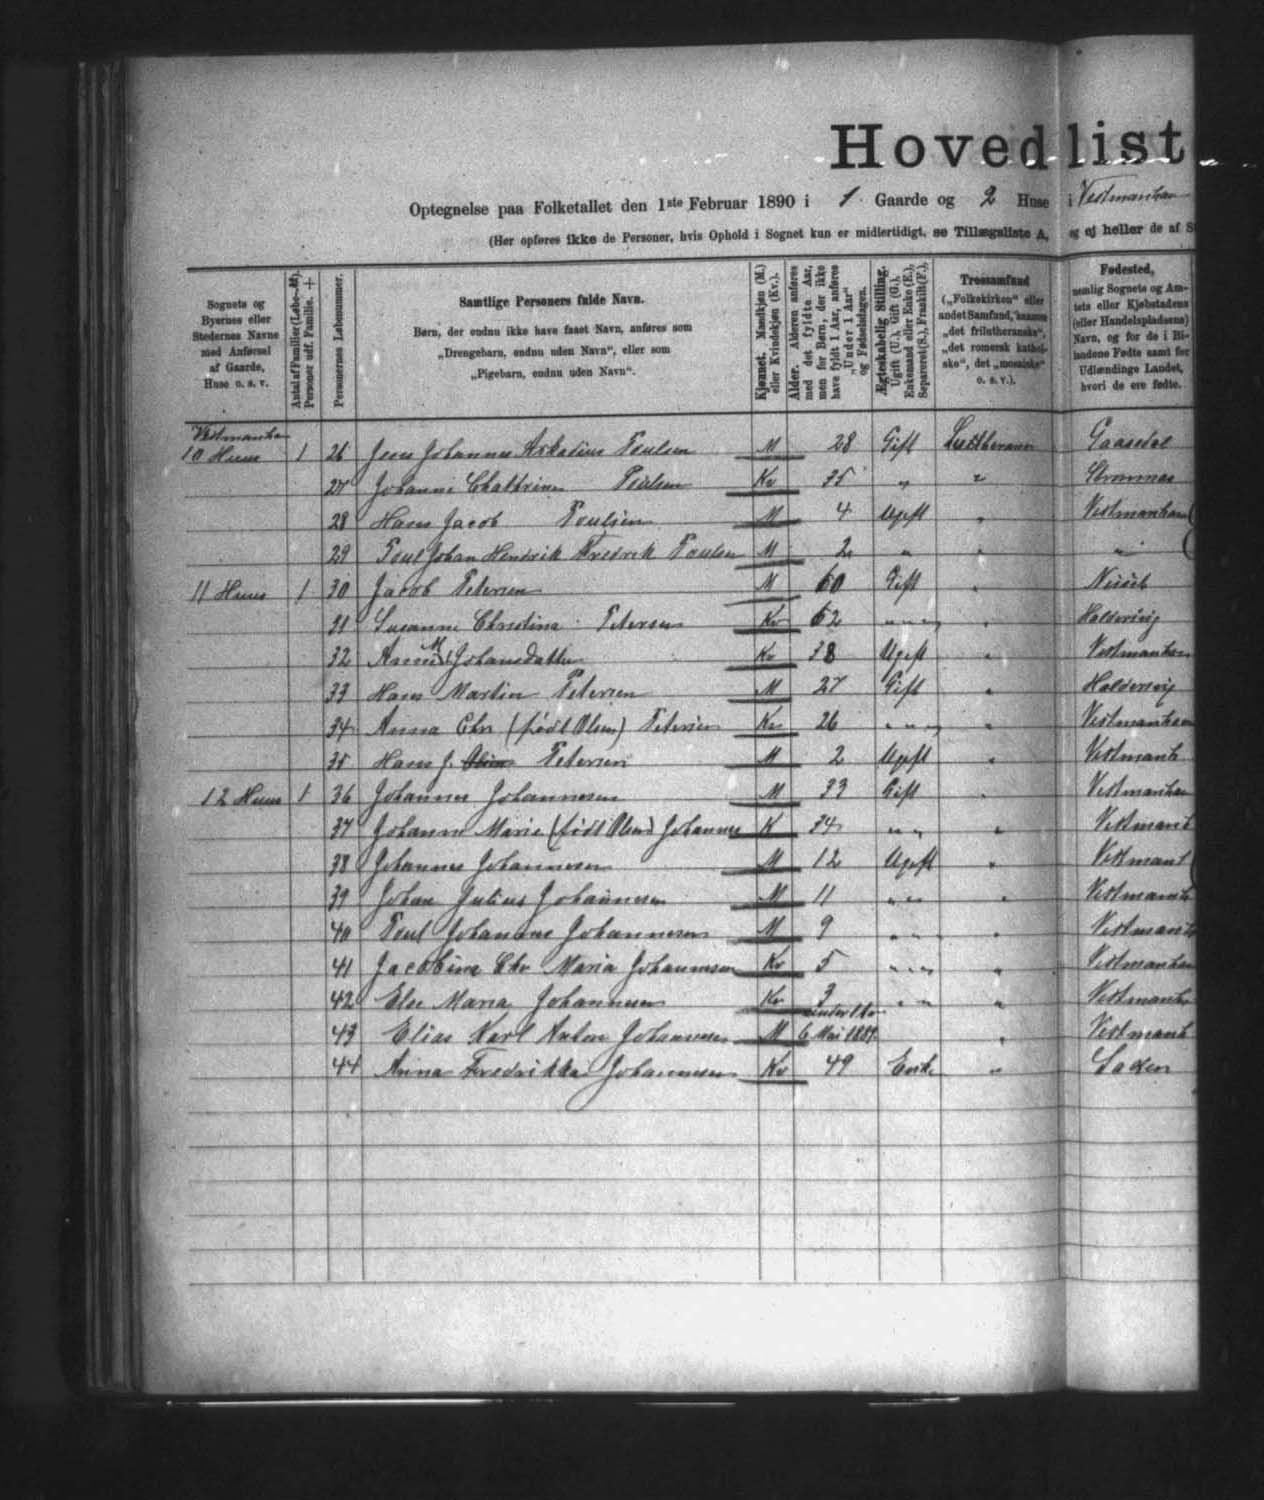 Hovedlist
Optegnelse paa Folketallet den 1ste Februar 1890 i 1 Gaarde og 2 Huse i Vestmanhavn
(Her opføres ikke de Personer, hvis Ophold i Sognet kun er midlertidigt, se Tillægsliste A, og ej heller de af S
Sognets og Byernes eller Stedernes Navne med Anførsel af Gaarde, Huse o. s. v.
Antal af Familier (Løbe-№). Personer udf. Familie. +
Personernes Løbenummer.
Samtlige Personers fulde Navn.
Børn, der endnu ikke have faaet Navn, anføres som
„Drengebarn, endnu uden Navn“, eller som
„Pigebarn, endnu uden Navn“.
Kjønnet. Mandkjøn (M.) eller Kvindekjøn (Kv.).
Alder. Alderen anføres med det fyldte Aar, men for Børn, der ikke have fyldt 1 Aar, anføres „Under 1 Aar“ og Fødselsdagen.
Ægteskabelig Stilling. Ugift (U.), Gift (G.), Enkemand eller Enke (E.), Separeret (S.), Fraskilt (F.).
Trossamfund
(„Folkekirken“ eller andet Samfund, saasom „det frilutheranske“, „det romersk katholske“, det „mosaiske“ o. s. v.).
Fødested,
nemlig Sognets og Amtets eller Kjøbstadens (eller Handelspladsens) Navn, og for de i Bilandene Fødte samt for Udlændinge Landet, hvori de ere fødte.
Vestmanha
10 Huus 1 26 Jens Johannes Arkadius Poulsen M 28 Gift Luttheraner Gaasedal
27 Johanne Chathrine Poulsen Kv 35 „ „ Strømnæs
28 Hans Jacob Poulsen M 4 Ugift „ Vestmanhavn
29 Poul Johan Hendrik Fredrik Poulsen M 2 „ „ „
11 Huus 1 30 Jacob Petersen M 60 Gift „
31 Susanne Christina Petersen Kv 62 „ „ „ Haldersvig
32 Anne M Johansdatter Kv 38 Ugift „ Vestmanhavn
33 Hans Martin Petersen M 27 Gift „ Haldersvig
34 Anna Chr (født Olsen) Petersen Kv 26 „ „ „ Vestmanhavn
35 Hans J. Petersen M 2 Ugift „ Vestmanh
12 Huus 1 36 Johannes Johannesen M 33 Gift „ Vestmanhavn
37 Johanne Marie (født Olsen) Johannes K 34 „ „ „ Vestmanh
38 Johannes Johannesen M 12 Ugift „ Vestmanh
39 Johan Julius Johannesen M 11 „ „ „ Vestmanh
40 Poul Johannes Johannesen M 9 „ „ „ Vestmanh
41 Jacobine Chr Maria Johannesen Kv 5 „ „ „ Vestmanhavn
42 Else Maria Johannesen Kv 3 „ „ „ Vestmanh
under 1 Aar
43 Elias Karl Anton Johannesen M 6 Mai 1889 „ Vestmanh
44 Anna Fredrikka Johannesen Kv 49 Enke „